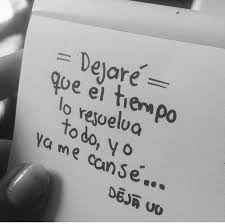 = Dejaré =
que el tiempo
lo resuelva
todo, yo
ya me cansé...
DĒJÀ VU